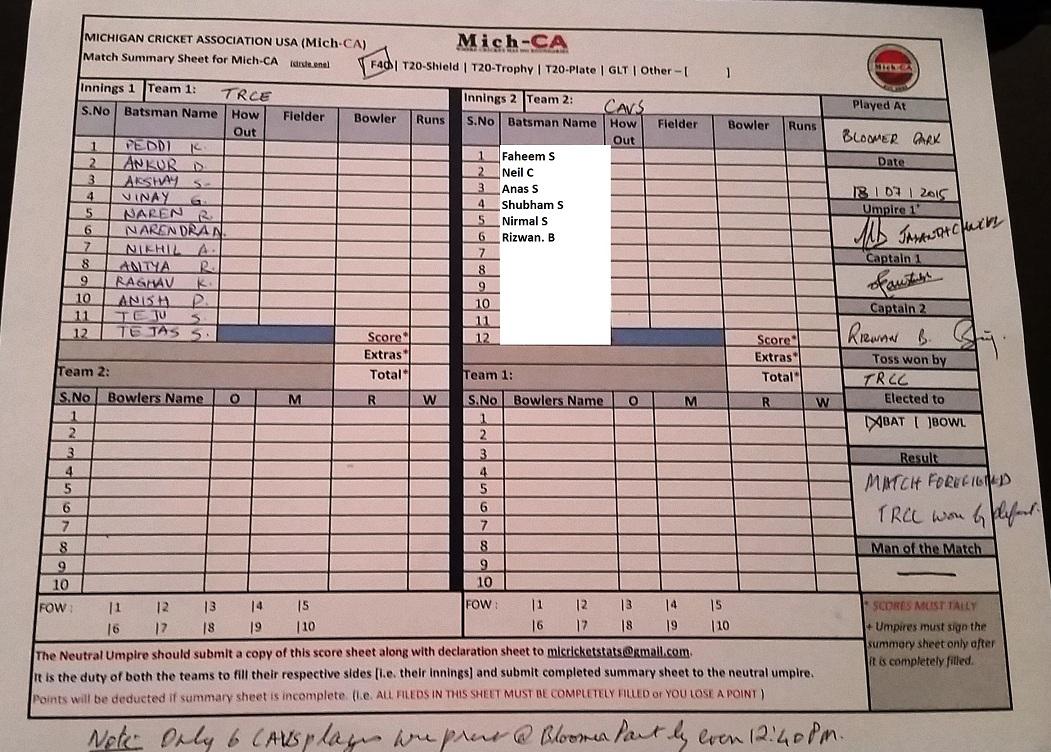 MICHIGAN CRICKET ASSOCIATION USA (Mich-CA)
Mich-CA
Match Summary Sheet for Mich-CA (circle one) F40 | T20-Shield | T20-Trophy | T20-Plate | GLT | Other – [ ]
Mich-CA
Innings 1 Team 1: TRCE
S.No Batsman Name How Out Fielder Bowler Runs
1 PEDDI K.
2 ANKUR D.
3 AKSHAY S.
4 VINAY G.
5 NAREN R.
6 NARENDRA N.
7 NIKHIL A.
8 ADITYA R.
9 RAGHAV K.
10 ANISH P.
11 TEJU S.
12 TEJAS S. Score*
Extras*
Total*
Team 2:
S.No Bowlers Name O M R W
1
2
3
4
5
6
7
8
9
10
FOW : |1 |2 |3 |4 |5
|6 |7 |8 |9 |10
Innings 2 Team 2: CAVS
S.No Batsman Name How Out Fielder Bowler Runs
1 Faheem S
2 Neil C
3 Anas S
4 Shubham S
5 Nirmal S
6 Rizwan. B
7
8
9
10
11
12 Score*
Extras*
Total*
Team 1:
S.No Bowlers Name O M R W
1
2
3
4
5
6
7
8
9
10
FOW : |1 |2 |3 |4 |5
|6 |7 |8 |9 |10
Played At
BLOOMER PARK
Date
18 | 07 | 2015
Umpire 1*
Captain 1
Captain 2
RIZWAN B.
Toss won by
TRCC
Elected to
[X]BAT [ ]BOWL
Result
MATCH
TRCC won by default.
Man of the Match
* SCORES MUST TALLY
+ Umpires must sign the
summary sheet only after
it is completely filled.
The Neutral Umpire should submit a copy of this score sheet along with declaration sheet to micricketstats@gmail.com.
It is the duty of both the teams to fill their respective sides [i.e. their innings] and submit completed summary sheet to the neutral umpire.
Points will be deducted if summary sheet is incomplete. (i.e. ALL FILEDS IN THIS SHEET MUST BE COMPLETELY FILLED or YOU LOSE A POINT )
Note: Only 6 CAVS players were @ Bloomer Park by even 12:40 Pm.